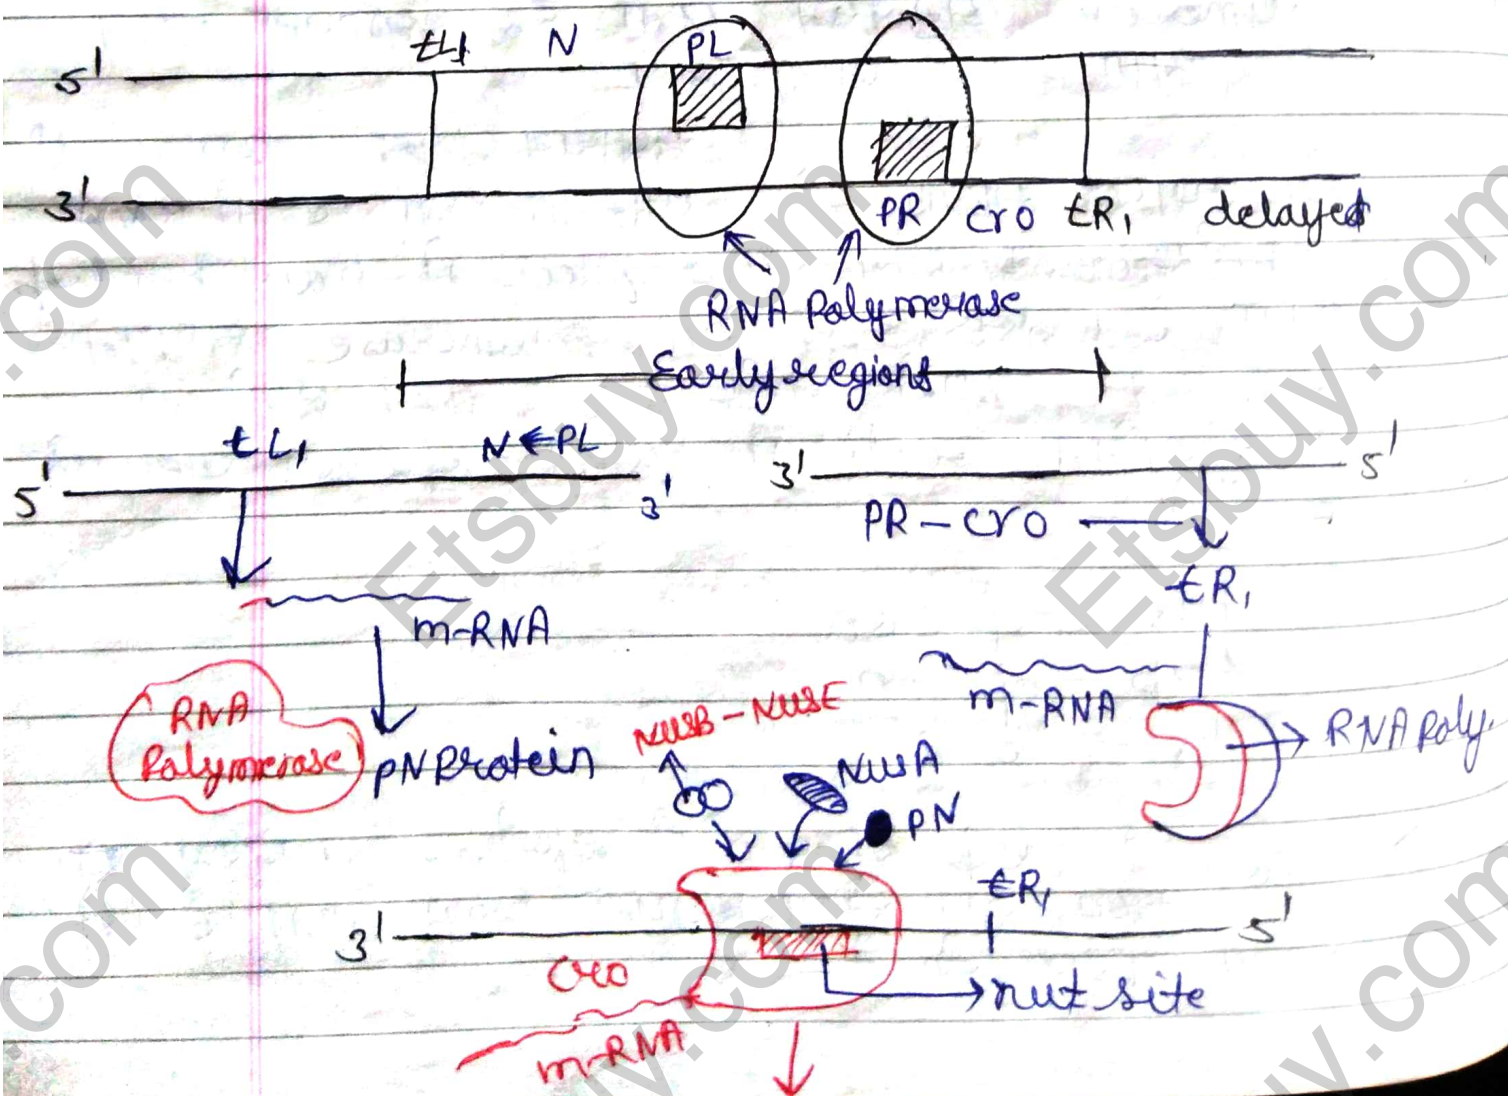 tL1 N PL
5'
3'
PR cro tR1 delayed
RNA Polymerase
Early regions
tL1 N ← PL
5' 3'
3' 5'
PR - cro
tR1
m-RNA
m-RNA
RNA Polymerase
pN Protein
NUSB - NUSE
NUSA
PN
RNA Poly.
tR1
3' 5'
cro
nut site
m-RNA
Etsbuy.com
Etsbuy.com